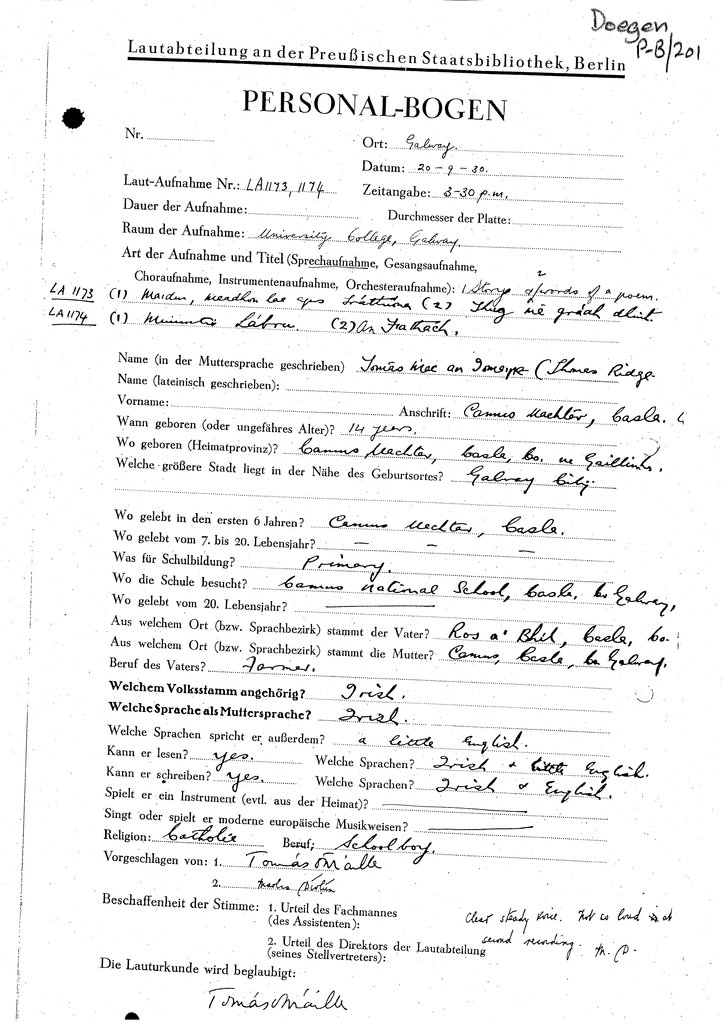 Doegen
P-B/201
Lautabteilung an der Preußischen Staatsbibliothek, Berlin
PERSONAL-BOGEN
Nr.
Ort: Galway.
Datum: 20-9-30.
Laut-Aufnahme Nr.: LA1173, 1174
Zeitangabe: 3-30 p.m.
Dauer der Aufnahme:
Durchmesser der Platte:
Raum der Aufnahme: University College, Galway.
Art der Aufnahme und Titel (Sprechaufnahme, Gesangsaufnahme,
Choraufnahme, Instrumentenaufnahme, Orchesteraufnahme): 1 Story & words of a poem.
2
LA 1173 (1) Maidin, meadhon lae (2) Thug mé grádh dhuit.
LA 1174 (1) (2) An Fathach.
Name (in der Muttersprache geschrieben) Tomás Mac an (Thomas Ridge
Name (lateinisch geschrieben):
Vorname:
Anschrift: Camus Uachtar, Casla.
Wann geboren (oder ungefähres Alter)? 14 years.
Wo geboren (Heimatprovinz)? Camus Uachtar, Casla, Co. na Gaillimhe.
Welche größere Stadt liegt in der Nähe des Geburtsortes? Galway City
Wo gelebt in den ersten 6 Jahren? Camus Uachtar, Casla.
Wo gelebt vom 7. bis 20. Lebensjahr? — — —
Was für Schulbildung? Primary.
Wo die Schule besucht? Camus National School, Casla, Co Galway,
Wo gelebt vom 20. Lebensjahr?
Aus welchem Ort (bzw. Sprachbezirk) stammt der Vater? Ros a' Bhil, Casla, Co.
Aus welchem Ort (bzw. Sprachbezirk) stammt die Mutter? Camus, Casla, Co Galway.
Beruf des Vaters? Farmer.
Welchem Volksstamm angehörig? Irish.
Welche Sprache als Muttersprache? Irish.
Welche Sprachen spricht er außerdem? a little English.
Kann er lesen? yes. Welche Sprachen? Irish & little English.
Kann er schreiben? yes. Welche Sprachen? Irish & English.
Spielt er ein Instrument (evtl. aus der Heimat)?
Singt oder spielt er moderne europäische Musikweisen?
Religion: Catholic Beruf: Schoolboy.
Vorgeschlagen von: 1. Tomás Ó Máille
2.
Beschaffenheit der Stimme: 1. Urteil des Fachmannes
(des Assistenten):
clear steady voice. Not so loud at
second recording. M. D.
2. Urteil des Direktors der Lautabteilung
(seines Stellvertreters):
Die Lauturkunde wird beglaubigt:
Tomás Ó Máille